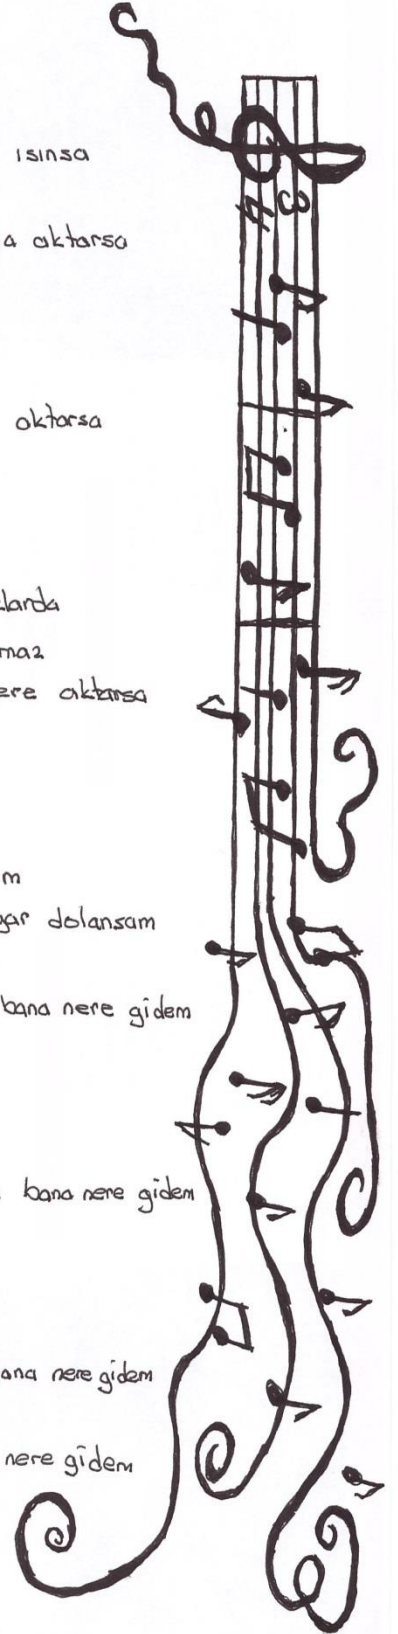 ısınsa
a aktarsa
aktarsa
larda
maz
ere aktarsa
m
gar dolansam
bana nere gidem
bana nere gidem
ana nere gidem
nere gidem